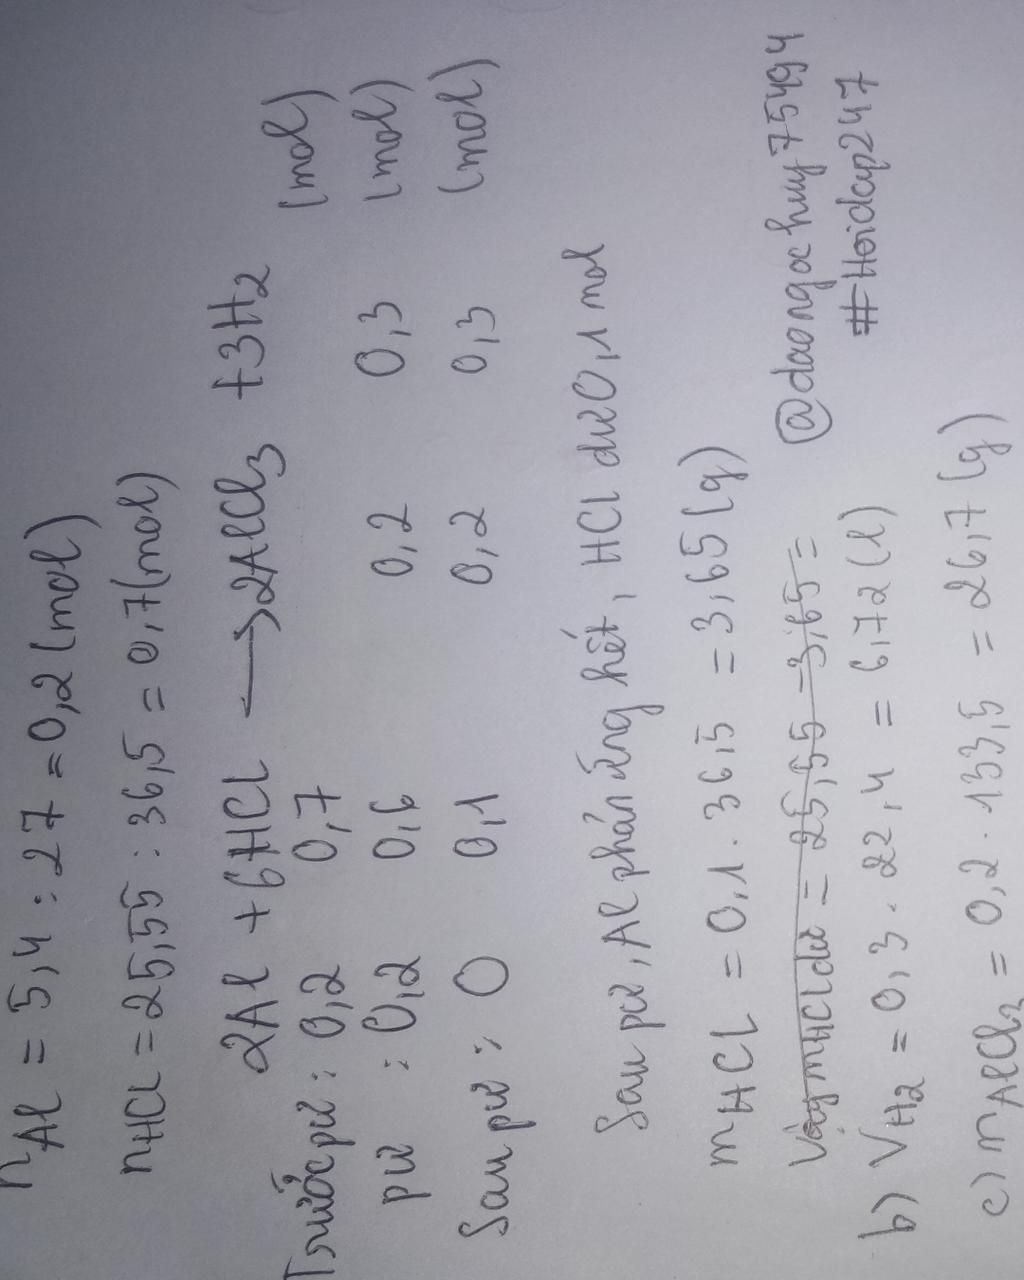 nAl = 5,4 : 27 = 0,2 (mol)
nHCl = 25,55 : 36,5 = 0,7 (mol)
2Al + 6HCl → 2AlCl3 + 3H2
Trước pư : 0,2 0,7 (mol)
pư : 0,2 0,6 0,2 0,3 (mol)
Sau pư : 0 0,1 0,2 0,3 (mol)
Sau pư, Al phản ứng hết, HCl dư 0,1 mol
mHCl = 0,1 . 36,5 = 3,65 (g)
Vậy mHCl dư = 25,55 - 3,65 =
@daongochuy75494
#Hoidap247
b) VH2 = 0,3 . 22,4 = 6,72 (l)
c) mAlCl3 = 0,2 . 133,5 = 26,7 (g)